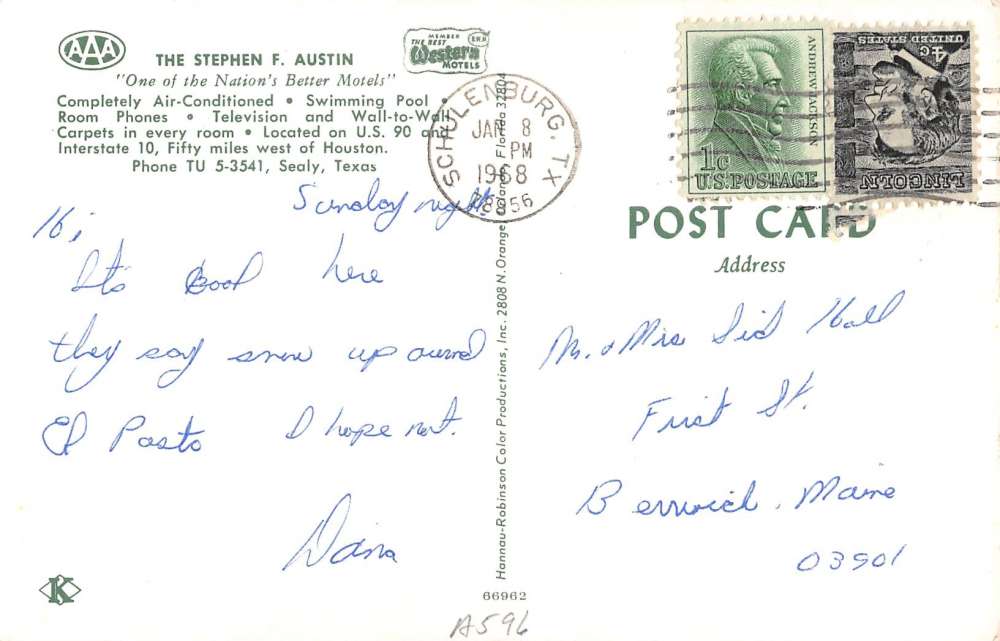 AAA
THE STEPHEN F. AUSTIN
"One of the Nation's Better Motels"
Completely Air-Conditioned • Swimming Pool •
Room Phones • Television and Wall-to-Wall
Carpets in every room • Located on U.S. 90 and
Interstate 10, Fifty miles west of Houston.
Phone TU 5-3541, Sealy, Texas
MEMBER
THE BEST
Western
MOTELS
SCHULENBURG, TX
JAN 8
PM
1968
78956
ANDREW JACKSON
1c
U.S. POSTAGE
4c
UNITED STATES
LINCOLN
Sunday night
Hi,
Its Cool here
they say snow up around
El Pasto I hope not.
Dana
POST CARD
Address
Mr. & Mrs Sid Hall
First St.
Berwick, Maine
03901
Hannau-Robinson Color Productions, Inc. 2808 N. Orange Orlando, Florida 32804
K
66962
A596